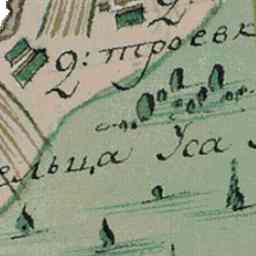 2
2: троевк
ельца Уса